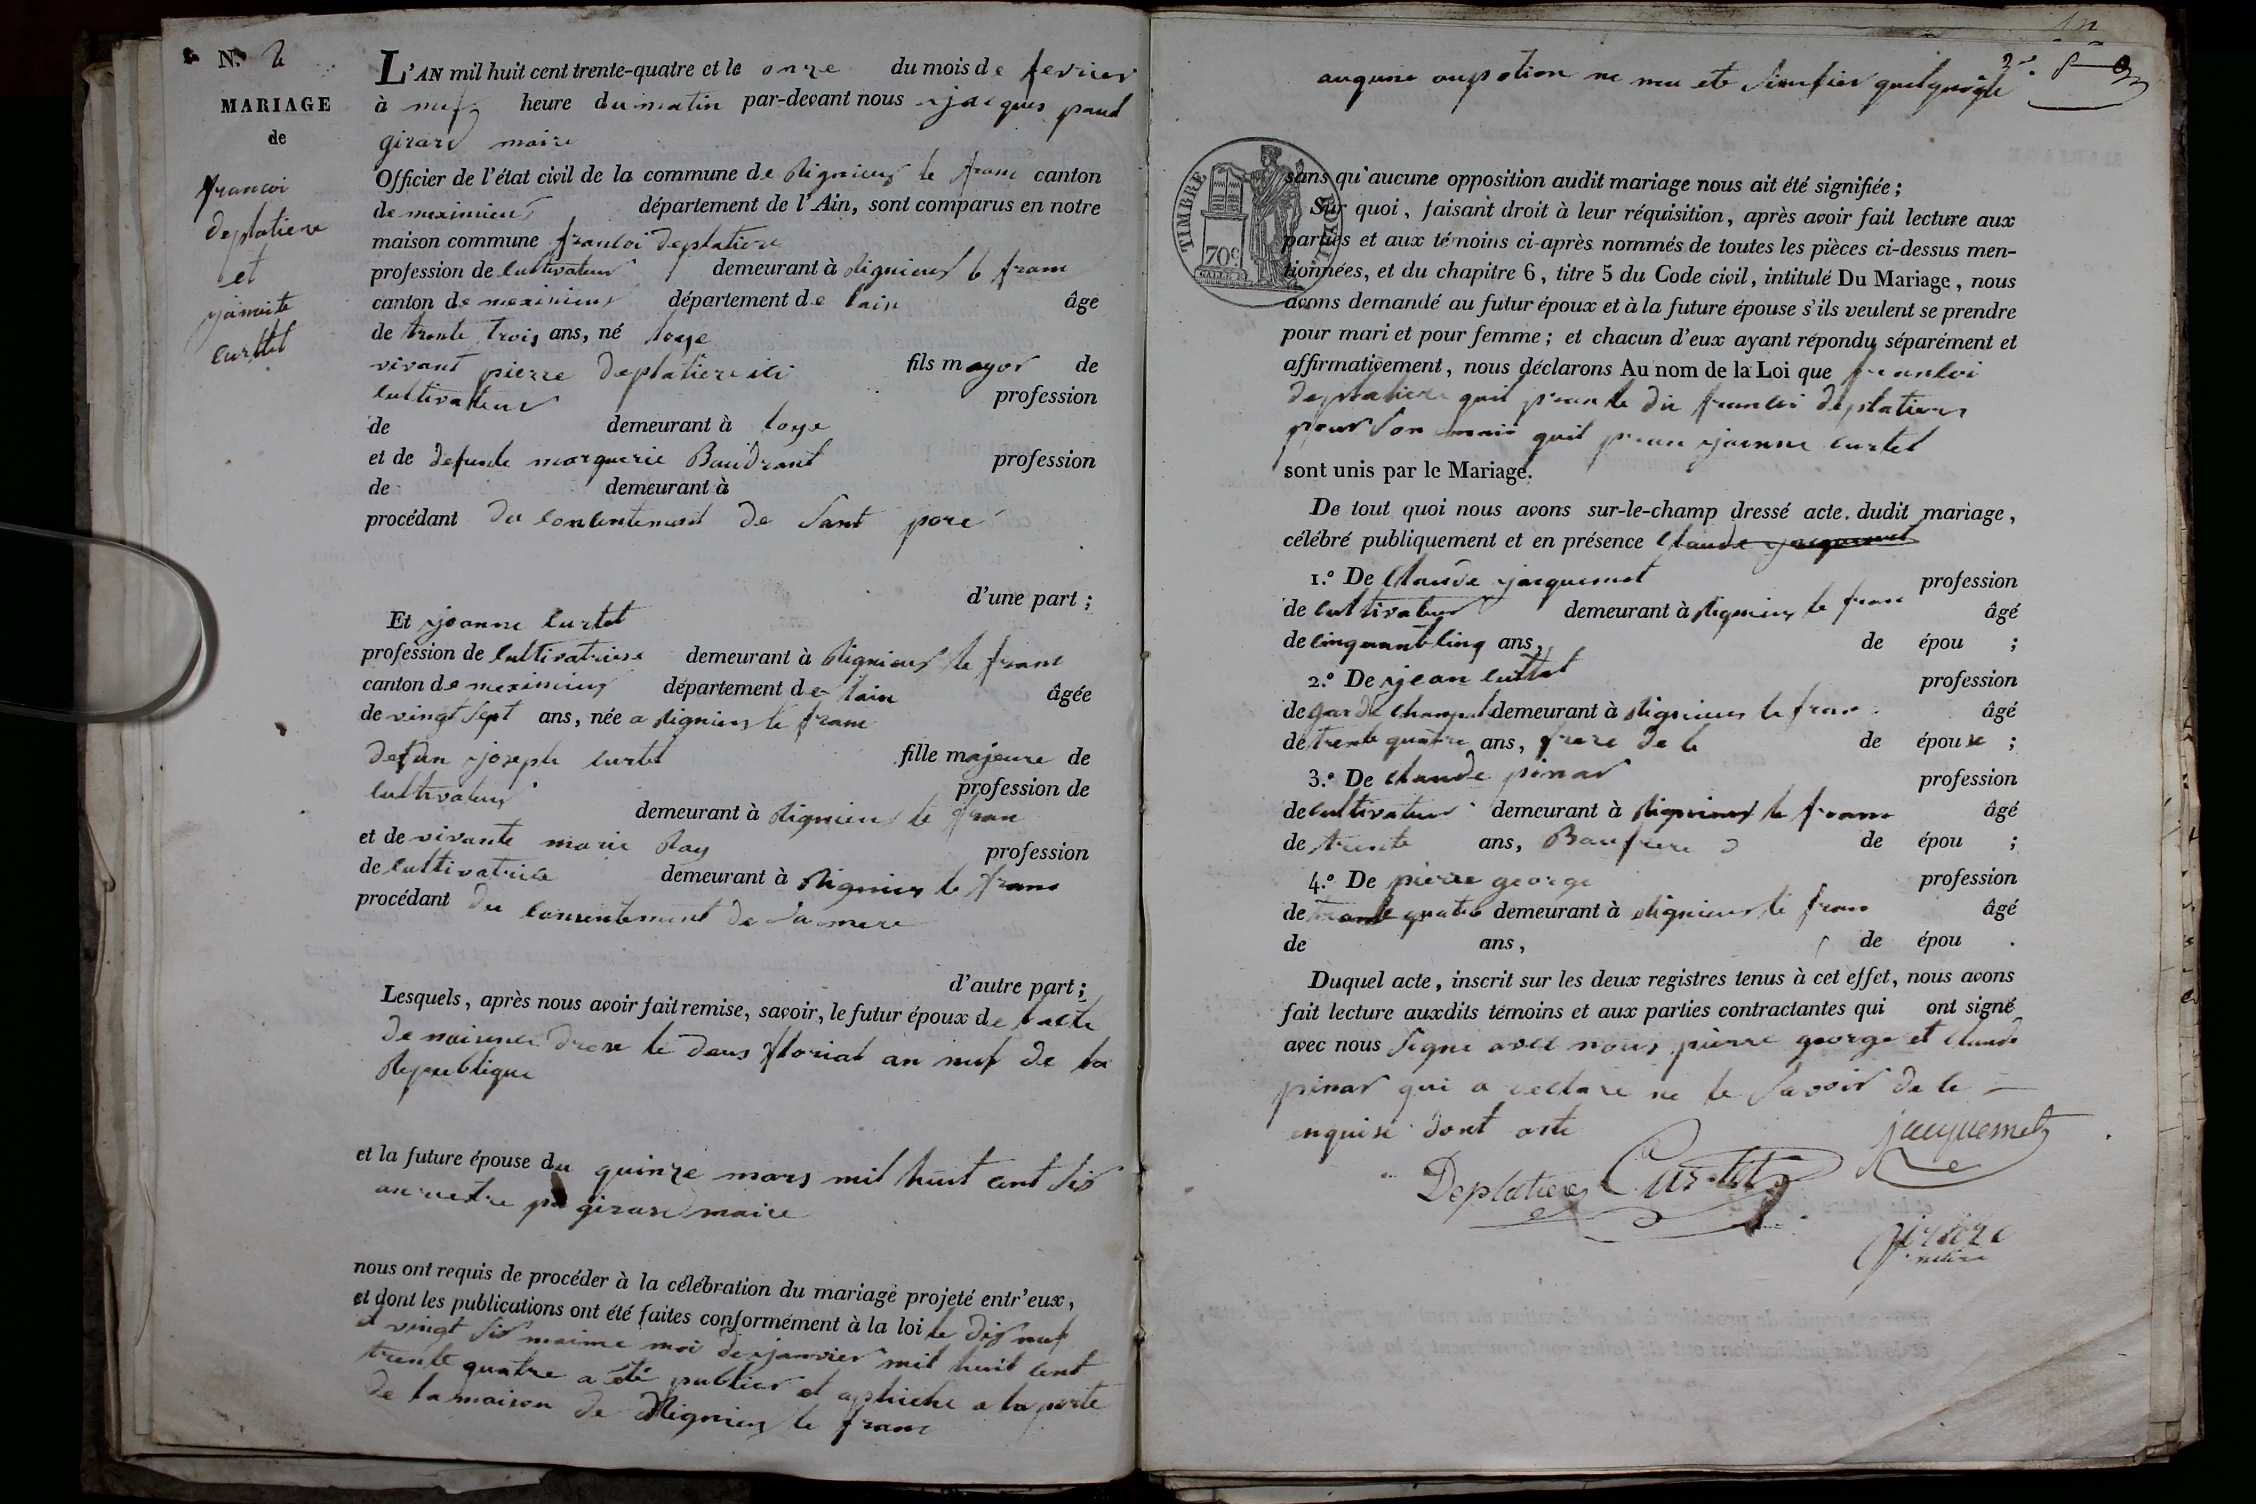 N.º 2
MARIAGE
de
francoi
deplatiere
et
jeannete
curtet
L'AN mil huit cent trente-quatre et le onze du mois de fevrier
à neuf heure du matin par-devant nous jacques paul
girard maire
Officier de l'état civil de la commune de Rignieux le franc canton
de meximieux département de l'Ain, sont comparus en notre
maison commune francoi deplatiere
profession de cultivateur demeurant à Rignieux le franc
canton de meximieux département de lain âgé
de trente trois ans, né loye
vivant pierre deplatiere ici fils mayor de
cultivateur profession
de demeurant à loye
et de defunte marguerie Baudrant profession
de demeurant à
procédant du consentement de sant pere
d'une part ;
Et joanne curtet
profession de cultivatrise demeurant à Rignieux le franc
canton de meximieux département de lain âgée
de vingt sept ans, née a Rignieux le franc
defun joseph curtet fille majeure de
cultivateur profession de
demeurant à Rignieux le fran
et de vivante marie Ray profession
de cultivatrice demeurant à Rignieux le franc
procédant du consentement de sa mere
d'autre part ;
Lesquels, après nous avoir fait remise, savoir, le futur époux de lacte
de naisence drese le deus floriat an nuf de la
Republique
et la future épouse du quinze mars mil huit cent sis
par girard maire
nous ont requis de procéder à la célébration du mariage projeté entr'eux,
et dont les publications ont été faites conformément à la loi le dis nuf
et vingt sis maime moi de janvier mil huit cent
trente quatre a été publier et aphiche a la porte
de la maison de Rignieux le franc
auqune oupotion ne
sans qu'aucune opposition audit mariage nous ait été signifiée ;
TIMBRE ROYAL
70c
Sur quoi, faisant droit à leur réquisition, après avoir fait lecture aux
parties et aux témoins ci-après nommés de toutes les pièces ci-dessus men-
tionnées, et du chapitre 6, titre 5 du Code civil, intitulé Du Mariage, nous
avons demandé au futur époux et à la future épouse s'ils veulent se prendre
pour mari et pour femme ; et chacun d'eux ayant répondu séparément et
affirmativement, nous déclarons Au nom de la Loi que francoi
deplatiere quil pran le dit francoi deplatiere
pour son mari quil pran joanne curtet
sont unis par le Mariage.
De tout quoi nous avons sur-le-champ dressé acte dudit mariage,
célébré publiquement et en présence Claude jacquemet
1.º De Claude jacquemet profession
de cultivateur demeurant à Rignieux le franc âgé
de cinquante cinq ans, de épou ;
2.º De jean curtet profession
de garde champet demeurant à Rignieux le fran âgé
de trente quatre ans, frere de le de épouse ;
3.º De claude pinar profession
de cultivateur demeurant à Rignieux le franc âgé
de trente ans, Baufrere d de épou ;
4.º De pierre george profession
de trante quatre demeurant à Rignieux le fran âgé
de ans, de épou .
Duquel acte, inscrit sur les deux registres tenus à cet effet, nous avons
fait lecture auxdits témoins et aux parties contractantes qui ont signé
avec nous signe avec nous pierre george et claude
pinar qui a declare ne le savoir de le
enquise dont acte
jacquemet
Deplatiere Curtet
girard
maire